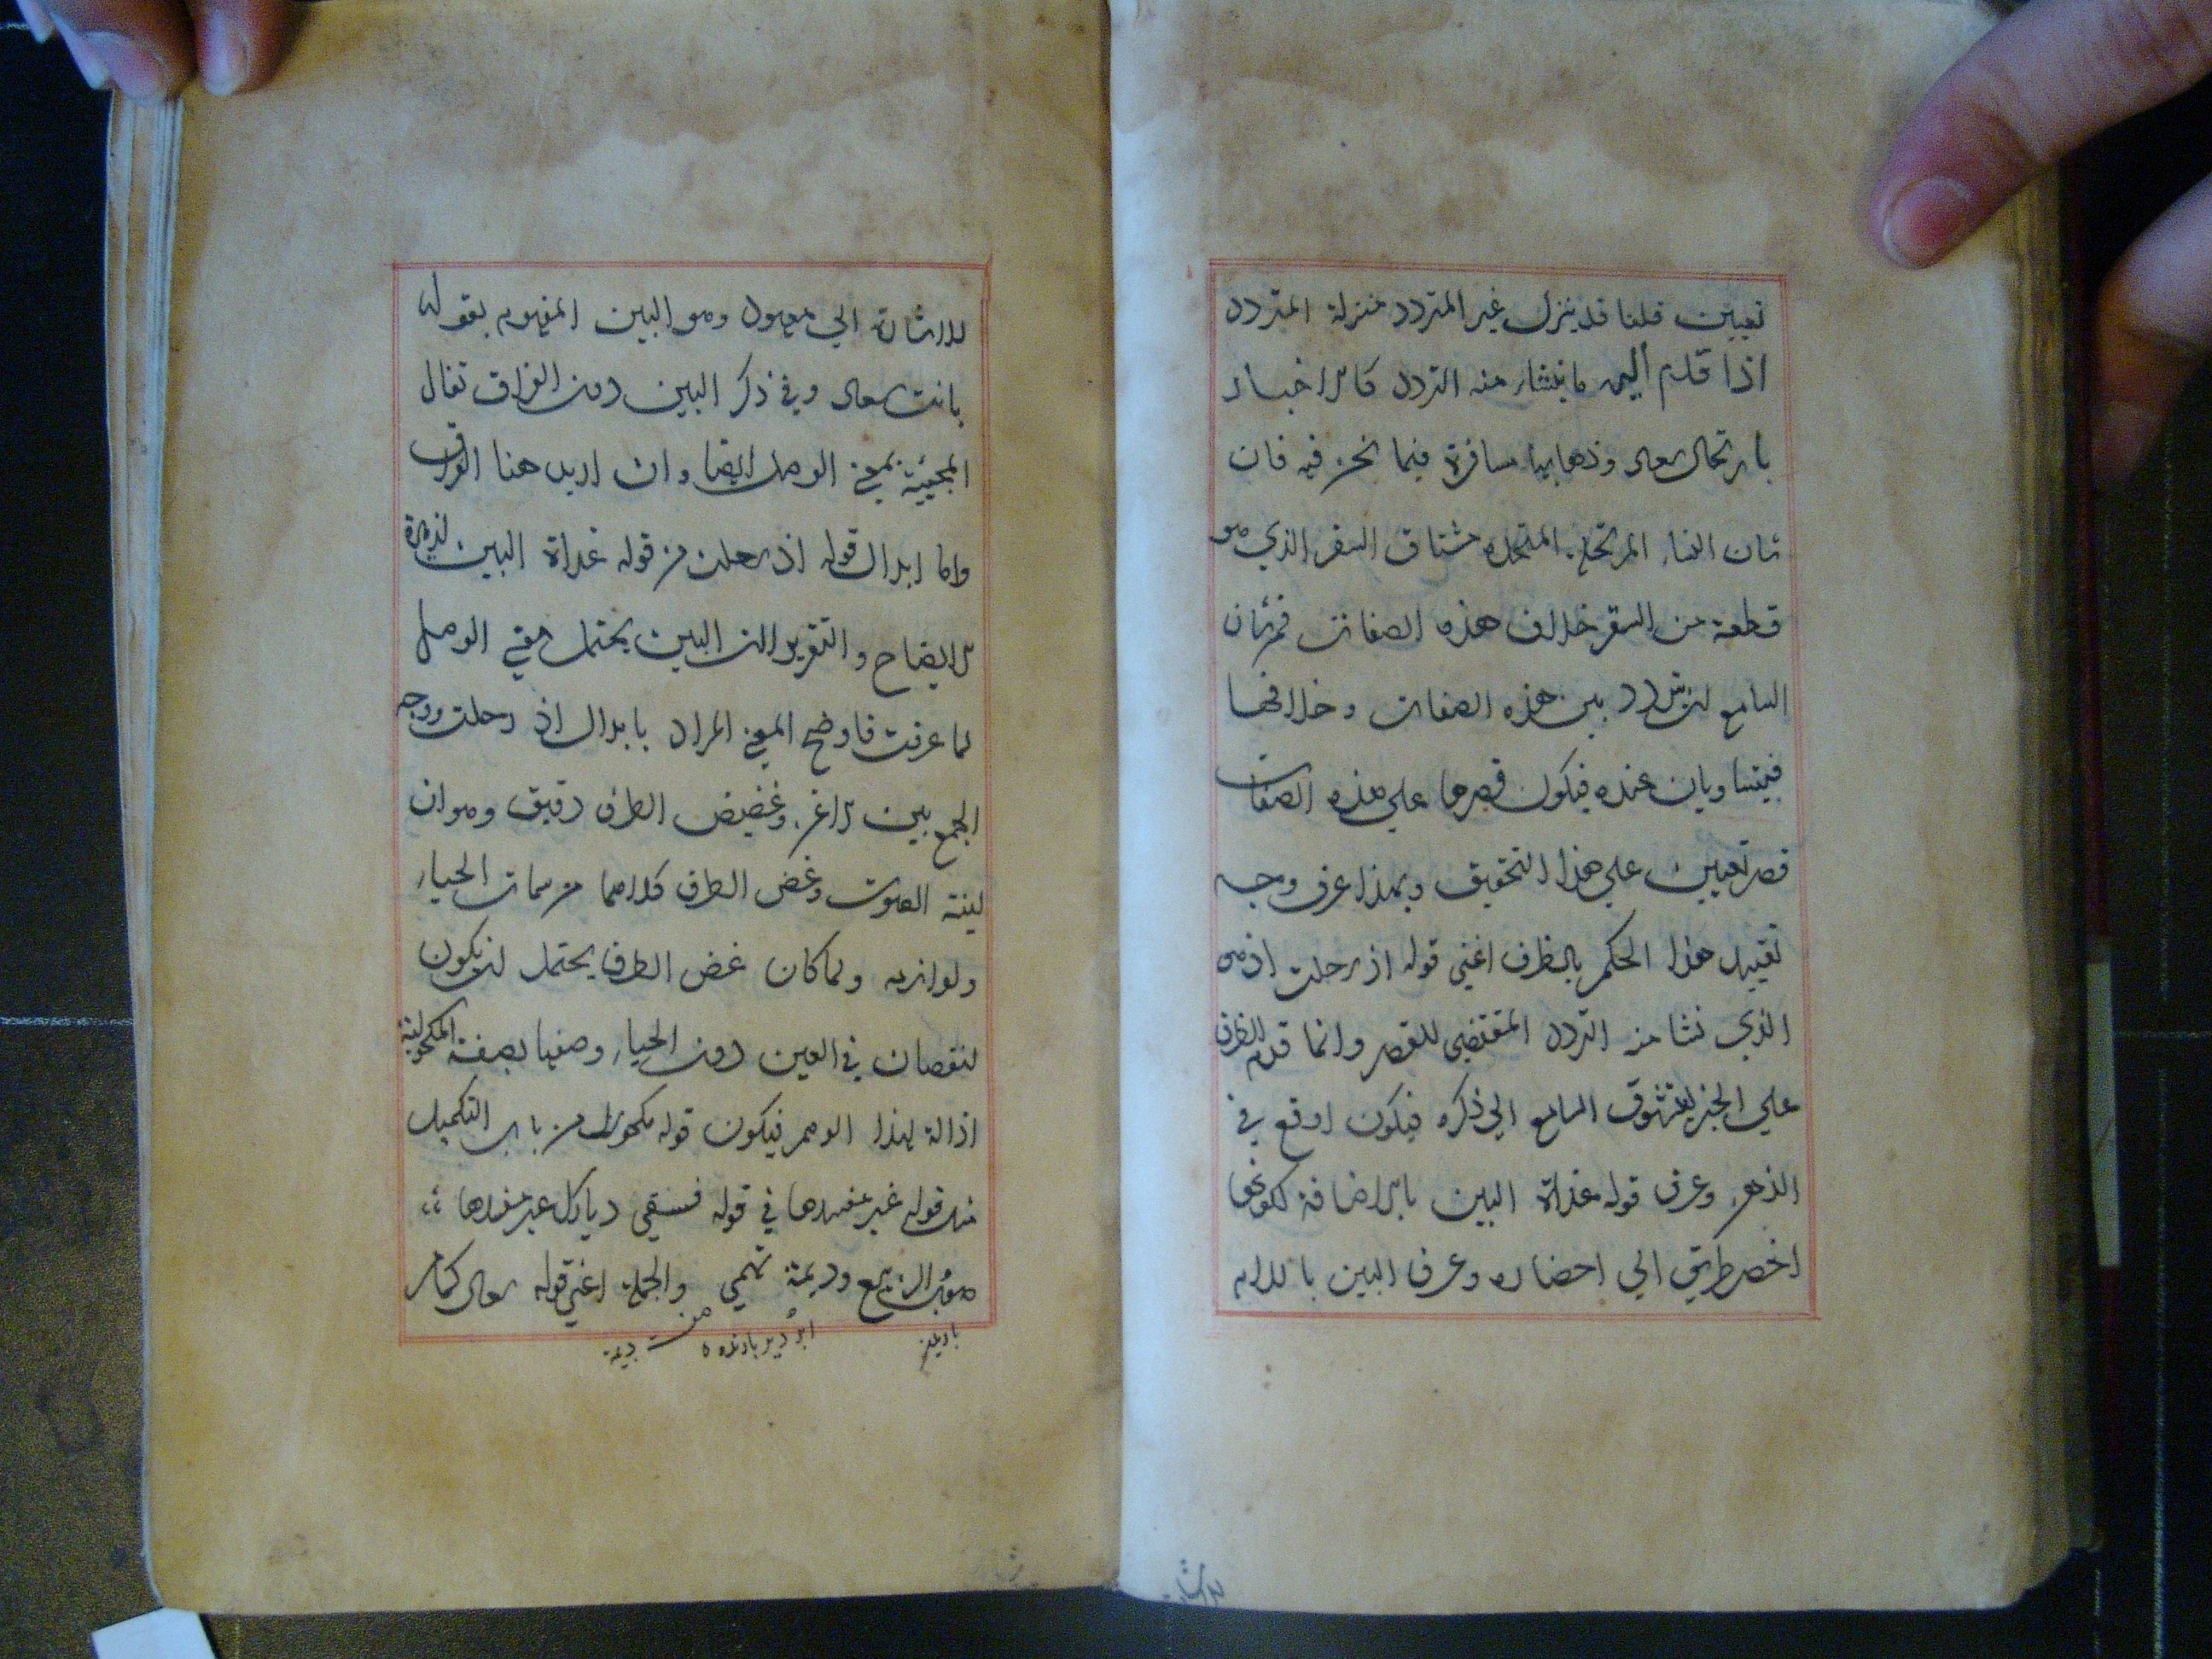 تعيين قلنا قد ينزل غير المتردد منزلة المتردد
اذا قدم اليه ما ينشاء منه التردد كالاخبار
بارتحال سعاد وذهابها مسافرة فيما نحن فيه فان
شان النساء المرتحلة المتحملة مشاق السفر الذي هو
قطعة من السقر خلاف هذه الصفات فمن شان
السامع ان يتردد بين هذه الصفات وخلافها
فيتساويان عنده فيكون قصرها على هذه الصفات
قصر تعيين على هذا التحقيق وبهذا عرف وجه
تقييد هذا الحكم بالظرف اعني قوله اذ رحلت اذ هو
الذي نشا منه التردد المقتضي للقصر وانما قدم الظرف
علي الخبر ليتشوق السامع الي ذكره فيكون اوقع في
الذهن وعرف قوله غداة البين بالاضافة لكونها
اخصر طريق الي احضاره وعرف البين باللام
للاشا
للاشارة الي معهود وهو البين المفهوم بقوله
بانت سعاد وفي ذكر البين دون الفراق تفال
المجيئه بمعني الوصل ايضا وان اريد هنا الفراق
واما ابدال قوله اذ رحلت من قوله غداة البين
للايضاح والتقرير لان البين يحتمل معني الوصل
لما عرفت فاوضح المعني المراد بابدال اذ رحلت ووجه
الجمع بين الاغن وغضيض الطرف دقيق وهو ان
لينة الصوت وغض الطرف كلاهما من سمات الحياء
ولوازمه ولما كان غض الطرف يحتمل ان يكون
لنقصان في العين دون الحياء وصفها بصفة المكحولية
ازالة لهذا الوهم فيكون قوله مكحول من باب التكميل
مثل قوله غير مفسدها في قوله فسقي ديارك غير مفسدها
صوب الربيع وديمة تهمي والجملة اعني قوله سعاد كما من